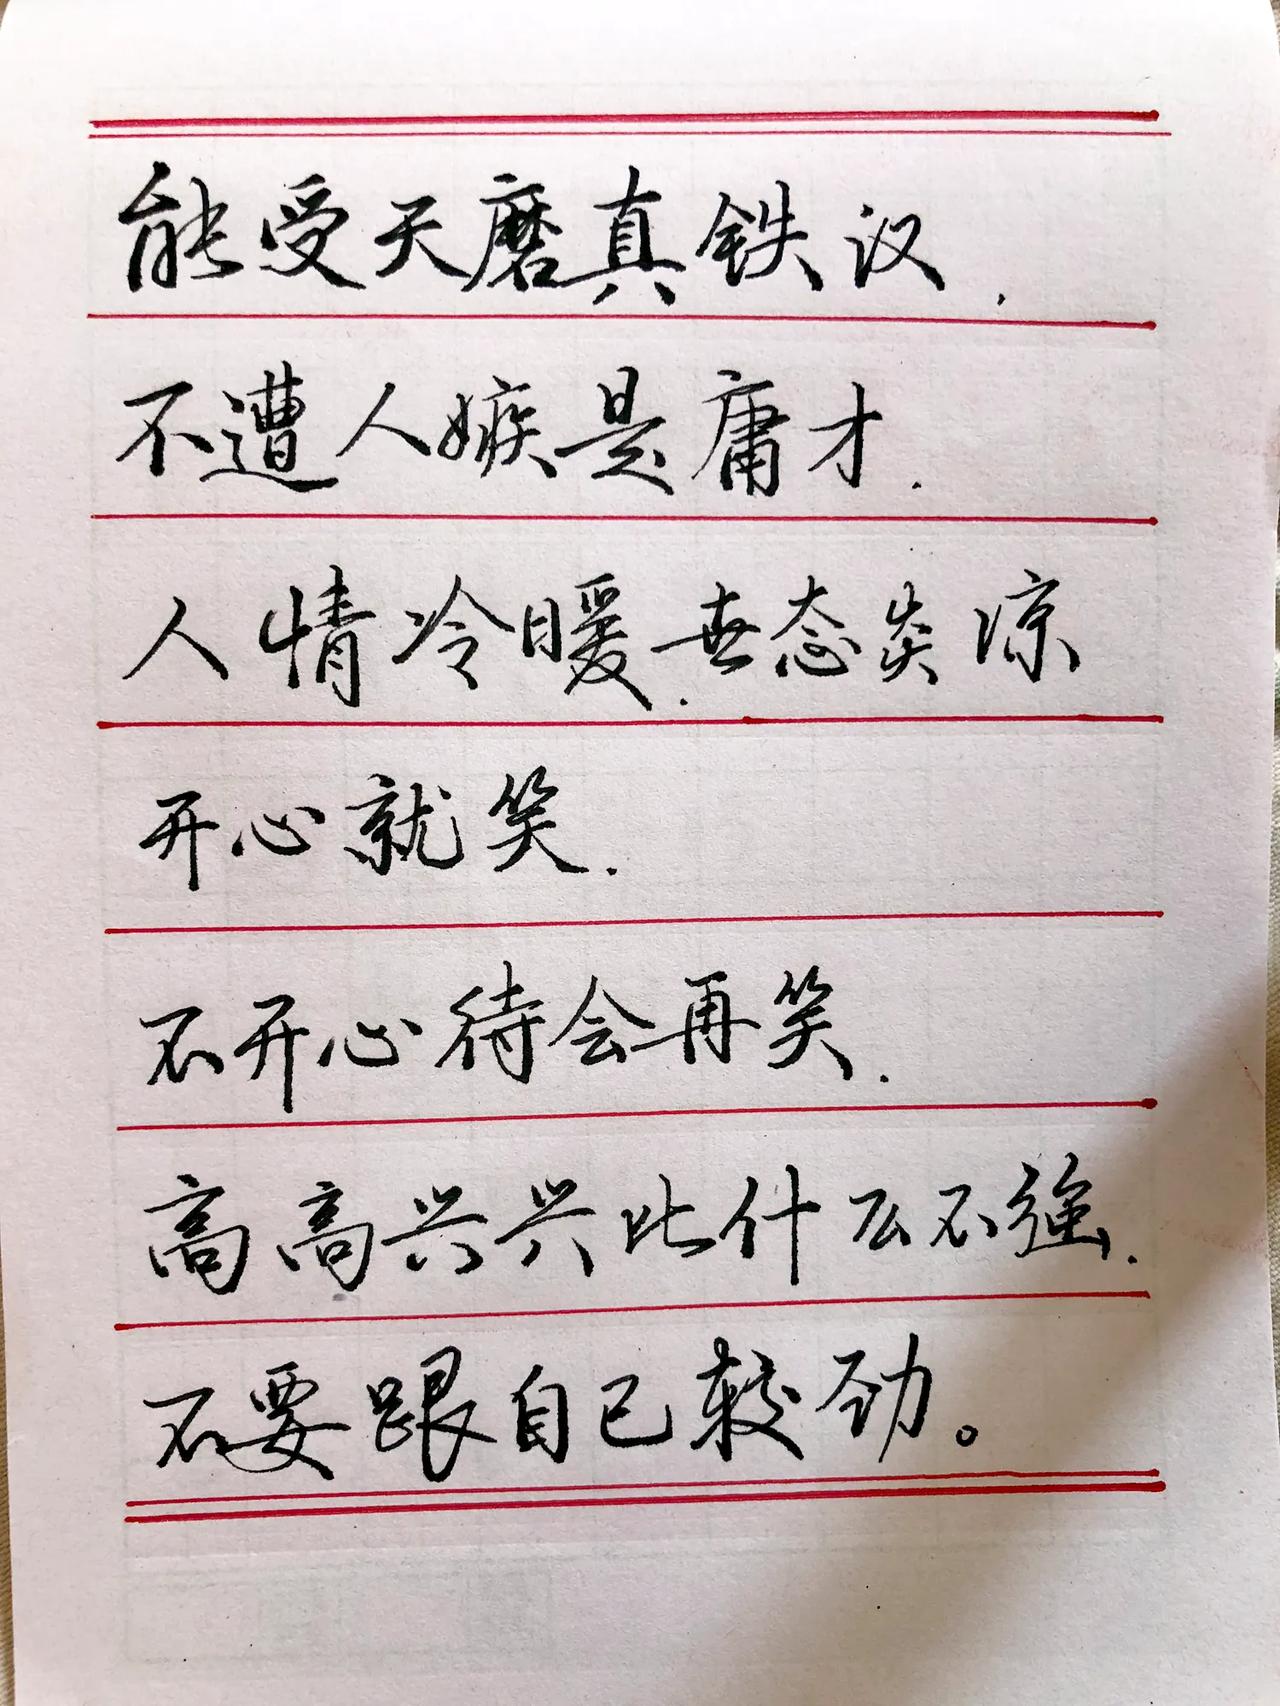 能受天磨真铁汉.
不遭人嫉是庸才.
人情冷暖.世态炎凉
开心就笑.
不开心待会再笑.
高高兴兴比什么不强.
不要跟自己较劲。